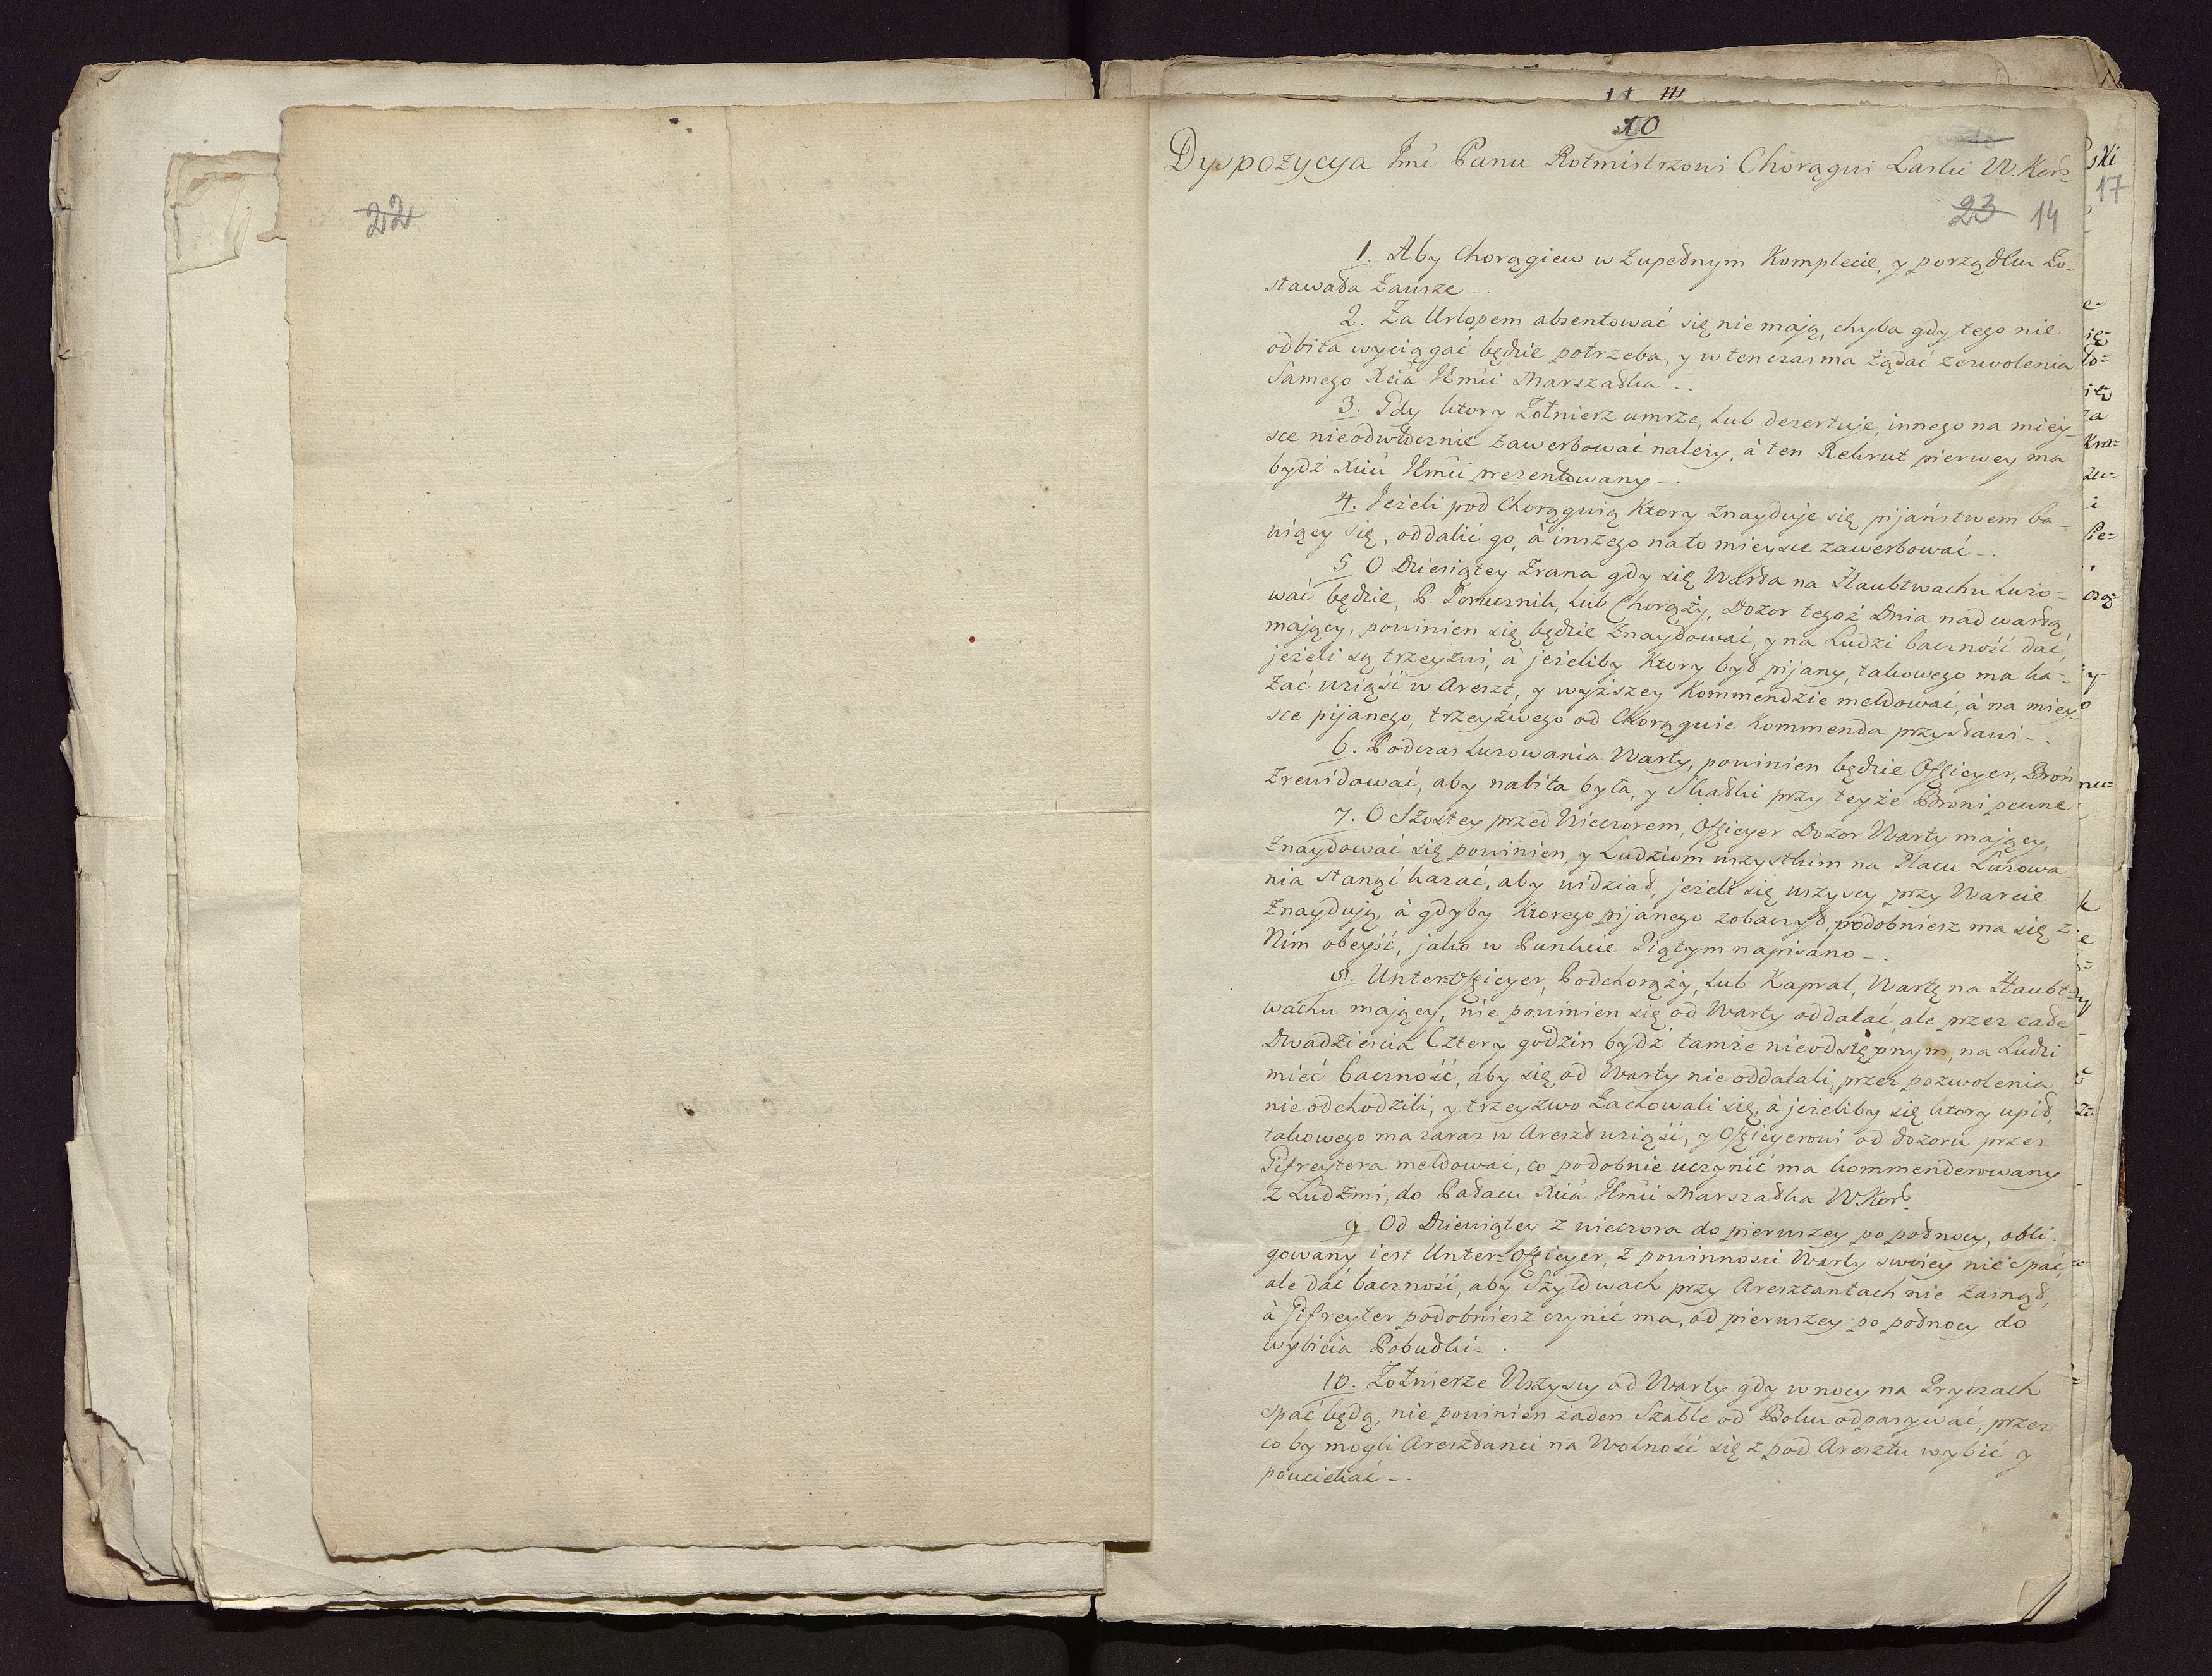 22
10
18
Dyspozycya Jmć Panu Rotmistrzowi Chorągwi Laski W. Kor:
23 14
17
1. Aby Chorągiew w Zupełnym Komplecie, y porządku Zo-
stawała Zawsze -.
2. Za Urlopem absentować się nie mają, chyba gdy tego nie
odbita wyciągać będzie potrzeba, y w ten czas ma żądać zezwolenia
Samego Xcia Jmci Marszałka -.
3. Gdy ktory Żołnierz umrze, lub dezertuje, innego na miey-
sce nieodwłocznie zawerbować należy, à ten Rekrut pierwey ma
bydź Xciu Jmci prezentowany -.
4. Jeżeli pod Chorągwią Ktory znayduje się pijaństwem ba-
wiący się, oddalić go, à inszego na to mieysce zawerbować -.
5 O Dziesiątey Zrana gdy się Warta na Haubtwachu luzo=
wać będzie, P. Porucznik, lub Chorąży, Dozor tegoż Dnia nad wartą
mający, powinien się będzie Znaydować, y na Ludzi baczność dać,
jeżeli są trzeyzwi, à jeżeliby Ktory był pijany, takowego ma ka-
zać wziąść w Areszt, y wyższey Kommendzie meldować, à na miey
sce pijanego, trzeyźwego od Chorągwie Kommenda przystawi -.
6. Podczas luzowania Warty, powinien będzie Officyer, Broń
Zrewidować, aby nabita była, y Skałki przy teyże Broni pewne
7. O Szostey przed Wieczorem, Officyer Dozor Warty mający,
Znaydować się powinien, y Ludziom wszystkim na Placu Luzowa-
nia stanąć kazać, aby widział, jeżeli się wszyscy przy Warcie
Znaydują, à gdyby Ktorego pijanego zobaczył, podobniesz ma się z
Nim obeyść, jako w Punkcie Piątym napisano -.
8. Unter-Officyer, Podchorąży, lub Kapral, Wartę na Haubt=
wachu mający, nie powinien się od Warty oddalać, ale przez całe
Dwadzieścia Cztery godzin bydź tamże nieodstępnym, na Ludzi
mieć baczność, aby się od Warty nie oddalali, przez pozwolenia
nie odchodzili, y trzeyzwo Zachowali się, à jeżeliby się ktory upił,
takowego ma zaraz w Areszt wziąść, y Officyerowi od dozoru przez
Gifreytera meldować, co podobnie uczynić ma kommenderowany
z Ludzmi, do Pałacu Xcia Jmci Marszałka W. Kor:
9 Od Dziewiątey z wieczora do pierwszey po połnocy, obli-
gowany iest Unter-Officyer, z powinnosci Warty swoiey nie spać,
ale dać baczność, aby Szyldwach przy Aresztantach nie Zasnął,
à Gifreyter podobniesz czynić ma, od pierwszey po połnocy do
wybicia Pobudki -.
10. Żołnierze Wszyscy od Warty gdy w nocy na Pryczach
spać będą, nie powinien żaden Szable od Boku odpasywać, przez
co by mogli Aresztanci na Wolność się z pod Aresztu wybić y
pouciekać -.